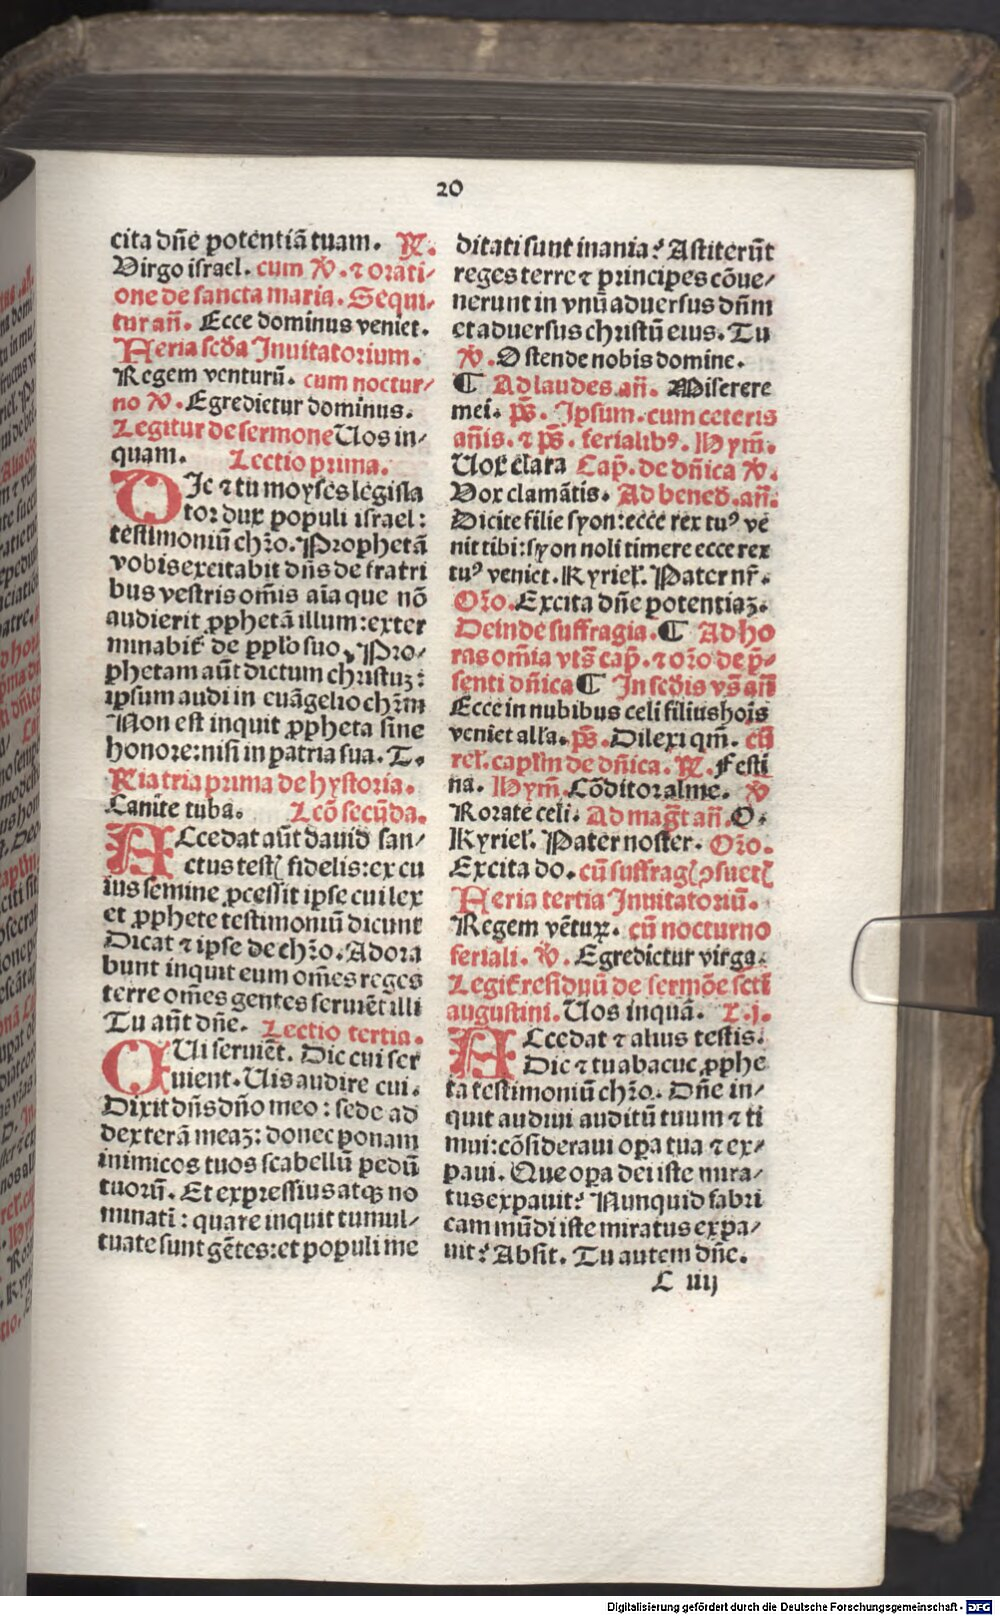 20
cita dñe potentiã tuam. ℟.
Virgo israel. cum ℣. ⁊ orati-
one de sancta maria. Sequi-
tur añ. Ecce dominus veniet.
Feria scďa Inuitatorium.
Regem venturũ. cum noctur-
no ℣. Egredietur dominus.
Legitur de sermone Uos in-
quam. Lectio prima.
DIc ⁊ tu moyses legisla
tor dux populi israel:
testimoniũ chr̃o. Prophetã
vobis excitabit dñs de fratri
bus vestris om̃is aĩa que nõ
audierit ꝓphetã illum: exter
minabit̃ de pplo suo, Pro-
phetam aũt dictum christuꝫ:
ipsum audi in euãgelio chr̃m
Non est inquit ꝓpheta sine
honore: nisi in patria sua. T.
Ria tria prima de hystoria.
Canite tuba. Lcõ secũda.
ACcedat aũt dauid san-
ctus testꝭ fidelis: ex cu
ius semine ꝓcessit ipse cui lex
et ꝓphete testimoniũ dicunt
Dicat ⁊ ipse de chr̃o. Adora
bunt inquit eum om̃es reges
terre om̃es gentes seruiẽt illi
Tu aũt dñe. Lectio tertia.
QUi seruiẽt. Dic cui ser
uient. Uis audire cui.
Dixit dñs dño meo: sede ad
dexterã meaꝫ: donec ponam
inimicos tuos scabellũ pedũ
tuorũ. Et expressius atqꝫ no
minati: quare inquit tumul-
tuate sunt gẽtes: et populi me
ditati sunt inania? Astiterũt
reges terre ⁊ principes cõue-
nerunt in vnũ aduersus dñm
et aduersus christũ eius. Tu
℣. Ostende nobis domine.
¶ Ad laudes. añ. Miserere
mei. p̃s. Ipsum. cum ceteris
añis. ⁊ p̃s. ferialibꝰ. Hym̃.
Uox clara Cap̃. de dñica ℣.
Vox clamãtis. Ad bened̃. añ.
Dicite filie syon: ecce rex tuꝰ ve
nit tibi: syon noli timere ecce rex
tuꝰ veniet. Kyriel̃. Pater nr̃.
Or̃o. Excita dñe potentiaꝫ.
Deinde suffragia. ¶ Ad ho
ras om̃ia vts̃ cap̃. ⁊ or̃o de p̃-
senti dñica ¶ In scďis vs̃ añ
Ecce in nubibus celi filius hoĩs
veniet all̃a. p̃s. Dilexi qm̃. cũ
rel̃. caplm̃ de dñica. ℟. Festi
na. Hym̃. Cõditor alme. ℣
Rorate celi. Ad magt̃ añ. O.
Kyriel̃. Pater noster. Or̃o.
Excita do. cũ suffragꝭ ↄsuetꝭ
Feria tertia Inuitatoriũ.
Regem vẽtuꝝ. cũ nocturno
feriali. ℣. Egredietur virga.
Legit̃ residuũ de sermõe scti
augustini. Uos inquã. L. j.
ACcedat ⁊ alius testis.
Dic ⁊ tu abacuc ꝓphe
ta testimoniũ chr̃o. Dñe in-
quit audiui auditũ tuum ⁊ ti
mui: cõsideraui oꝑa tua ⁊ ex-
paui. Que oꝑa dei iste mira-
tus expauit? Nunquid fabri
cam mũdi iste miratus expa-
uit? Absit. Tu autem dñe.
C iiij
Digitalisierung gefördert durch die Deutsche Forschungsgemeinschaft - DFG